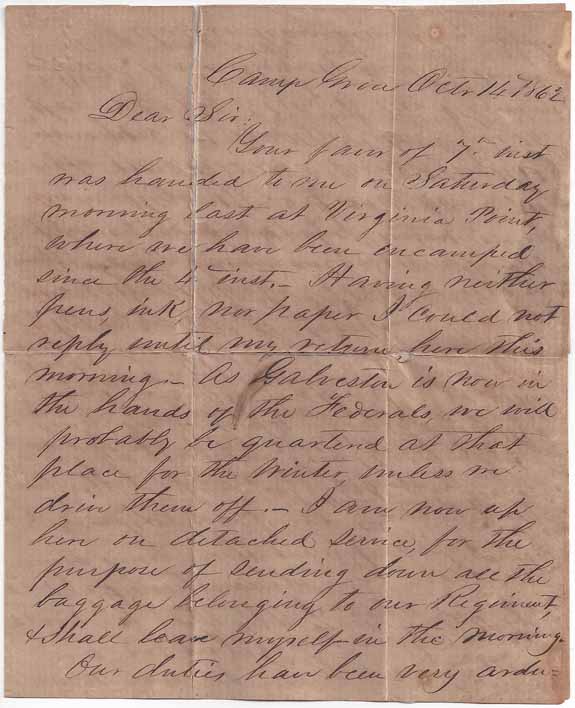 Camp Groce Octr 14th 1862
Dear Sir:
Your favr of 7th inst
was handed to me on Saturday
morning last at Virginia Point,
where we have been encamped
since the 4th inst. – Having neither
pens, ink nor paper I could not
reply until my return here this
morning – As Galveston is now in
the hands of the Federals, we will
probably be quartered at that
place for the Winter, unless we
drive them off. – I am now up
here on detached service, for the
purpose of sending down all the
baggage belonging to our Regiment,
& shall leave myself in the morning.
Our duties have been very ardu=